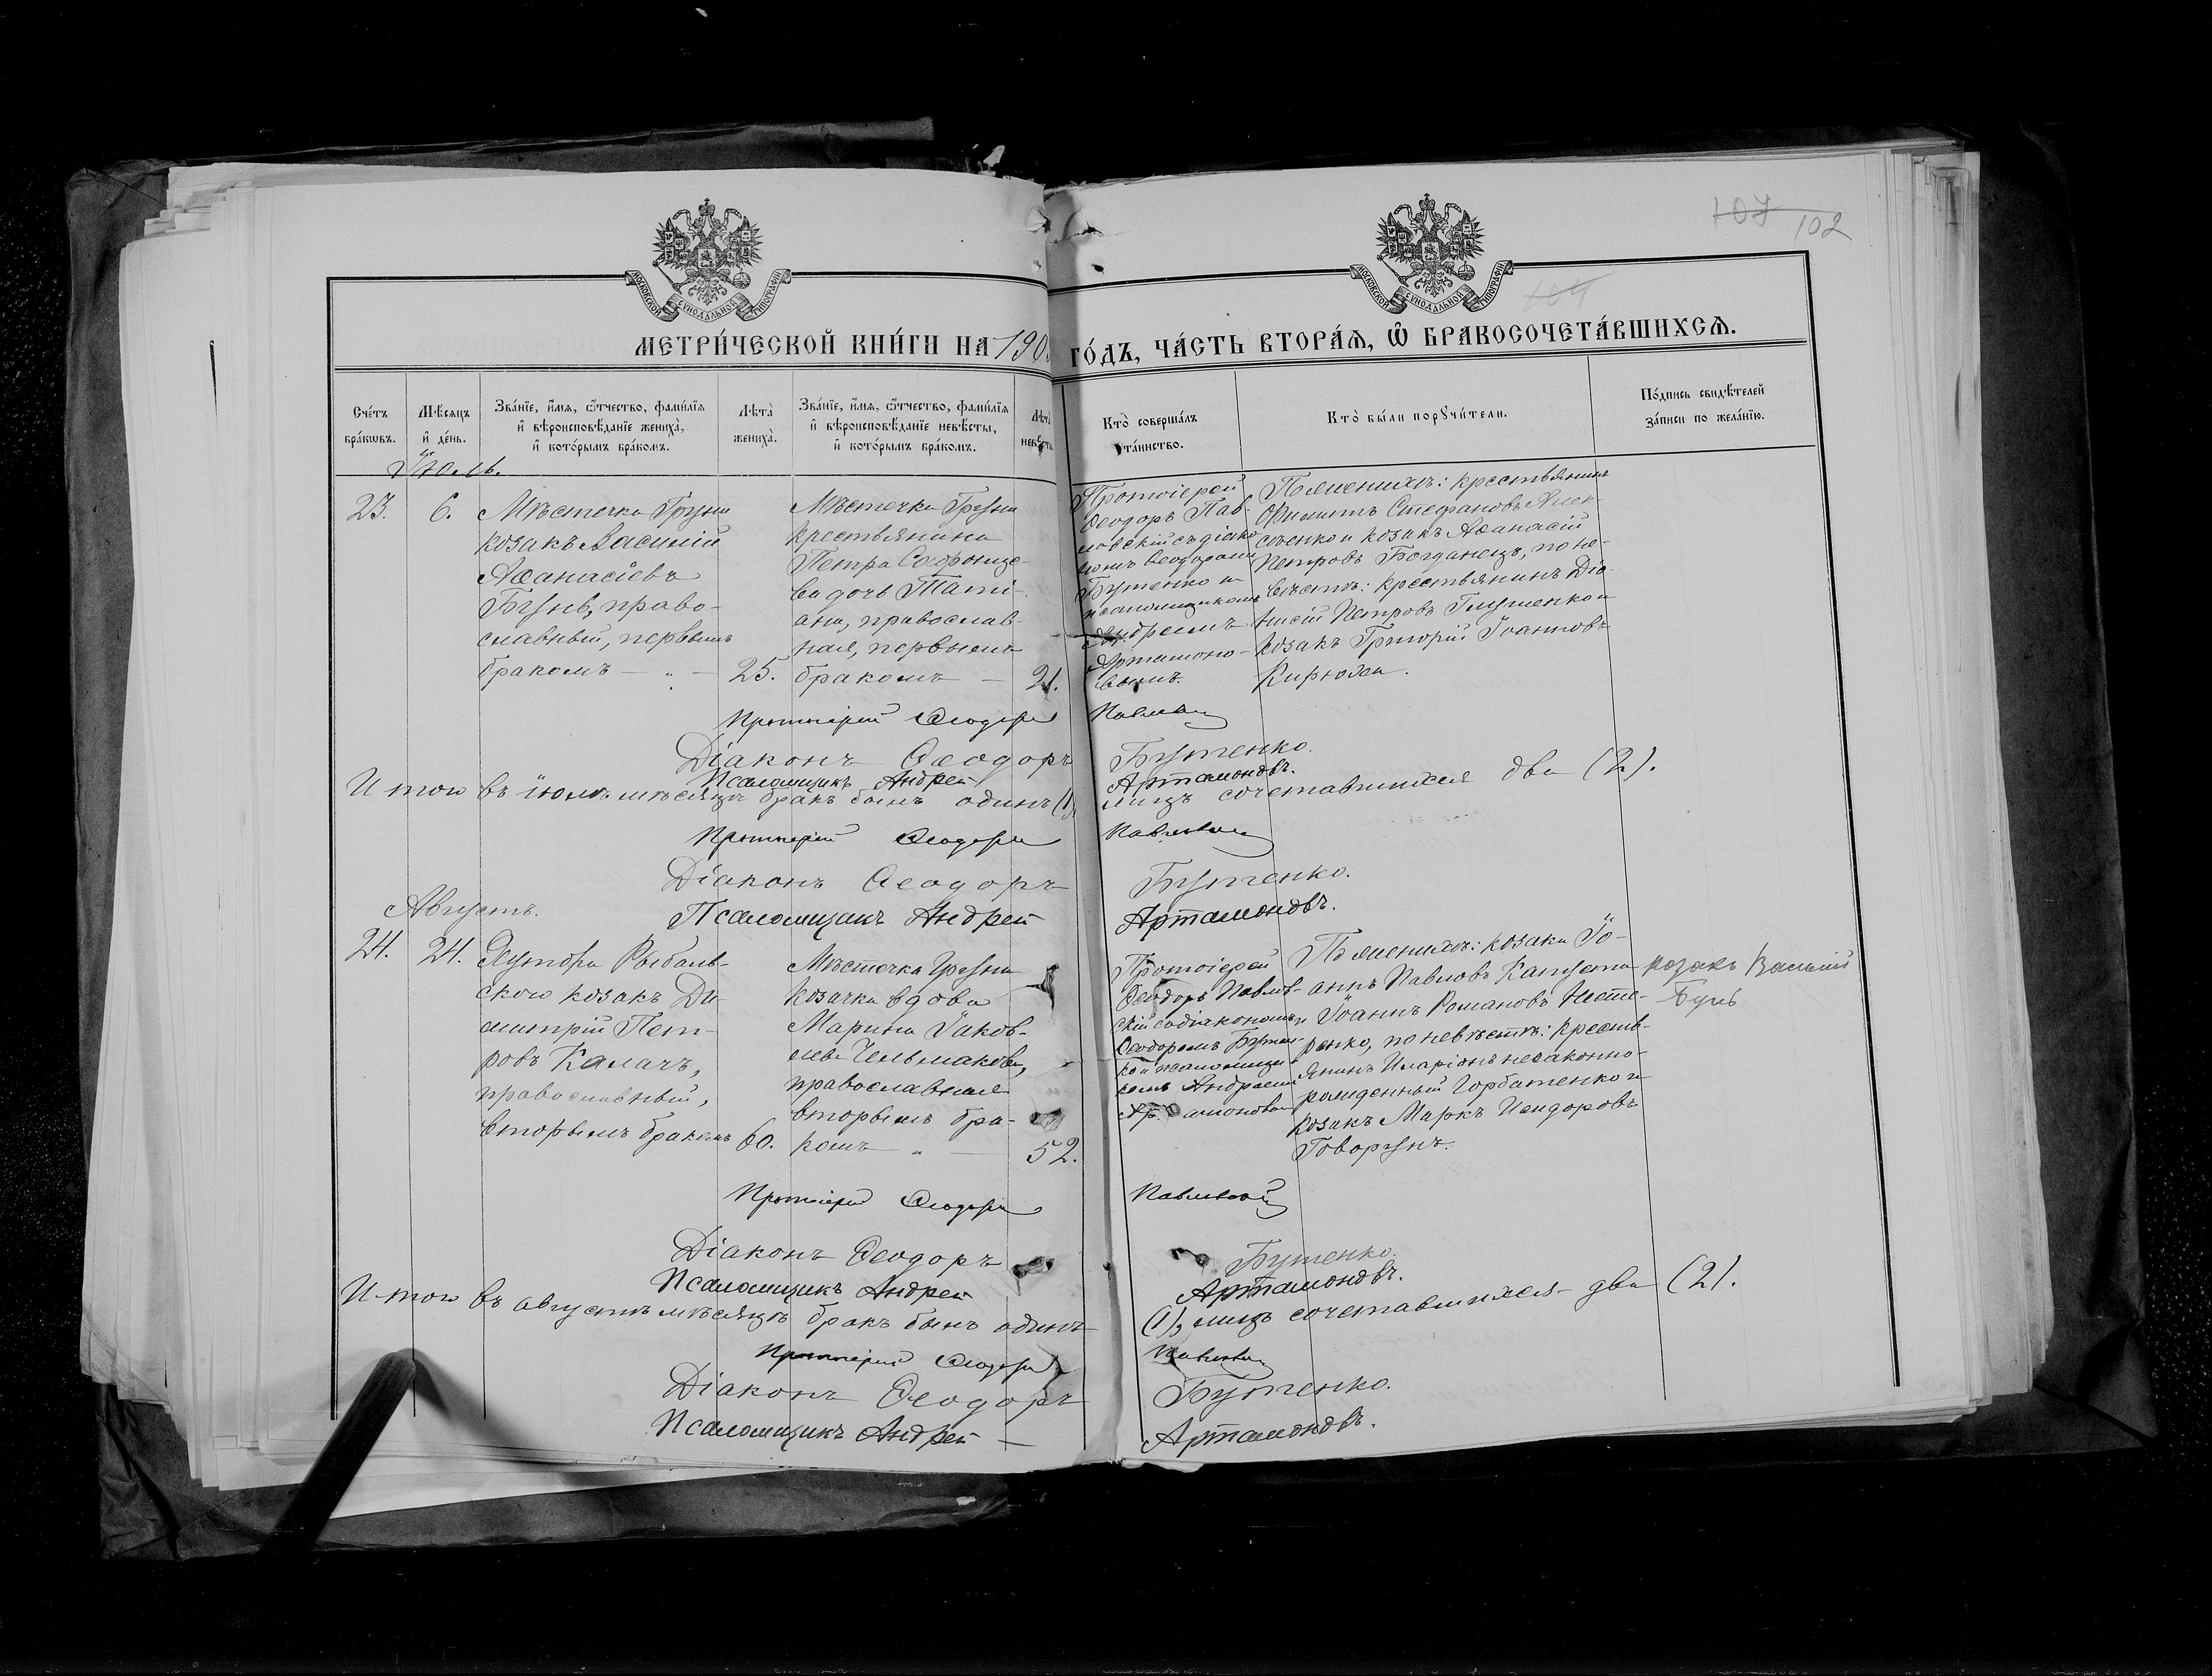 107 102
104
МОСКОВСКОЙ СѴНОДАЛЬНОЙ ТИПОГРАФІИ
МОСКОВСКОЙ СѴНОДАЛЬНОЙ ТИПОГРАФІИ
МЕТРИ́ЧЕСКОЙ КНИ́ГИ НА 190
ГО́ДЪ, ЧА́СТЬ ВТОРА́Ѧ, Ѡ҆ БРАКОСОЧЕТА́ВШИХСѦ.
Сче́тъ бра́кѡвъ.
Мѣ́сѧцъ и҆ де́нь.
Зва́нїе, и҆́мѧ, ѻ҆́тчество, фами́лїѧ
и҆ вѣроисповѣ́данїе жениха̀,
и҆ кото́рымъ бра́комъ.
Лѣта̀ жениха̀.
Зва́нїе, и҆́мѧ, ѻ҆́тчество, фами́лїѧ
и҆ вѣроисповѣ́данїе невѣ́сты,
и҆ кото́рымъ бра́комъ.
Лѣта̀ невѣ́сты
Кто̀ соверша́лъ
та́инство.
Кто̀ бы́ли порꙋчи́тели.
По́дпись свидѣ́телей
за́писи по жела́нїю.
Іюль.
23.
6.
Мѣстечка Груни
козакъ Василій
Аѳанасіевъ
Бгунъ, право-
славный, первымъ
бракомъ — „ —
25.
Мѣстечка Груни
крестьянина
Петра
ва дочь Таті-
ана, православ-
ная, первымъ
бракомъ —
21.
Протоіерей
Ѳеодоръ Пав-
ловскій съ діако-
номъ Ѳеодоромъ
Бутенко и
псаломщикомъ
Андреемъ
Артамоно-
вымъ.
По женихѣ: крестьянинъ
Филиппъ Стефановъ Алек
сѣенко и козакъ Аѳанасій
Петровъ Богданецъ, по не-
вѣстѣ: крестьянинъ Діо-
нисій Петровъ Глущенко и
козакъ Григорій Іоанновъ
Протоіерей Ѳеодоръ Павловскій
Діаконъ Ѳеодоръ Бутенко.
Псаломщикъ Андрей Артамоновъ.
Итого въ іюлѣ мѣсяцѣ бракъ былъ одинъ (1), лицъ сочетавшихся два (2).
Протоіерей Ѳеодоръ Павловскій
Діаконъ Ѳеодоръ Бутенко.
Псаломщикъ Андрей Артамоновъ.
Августъ.
24.
24.
Хутора Рыбаль-
ского козакъ Ди-
митрій Пет-
ровъ Калачъ,
православный,
вторымъ бракомъ
60.
Мѣстечка Груни
козачка вдова
Марина Іаков-
лева Чельмакова,
православная
вторымъ бра-
комъ „ —
52.
Протоіерей
Ѳеодоръ Павлов-
скій со діакономъ
Ѳеодоромъ Бутен-
ко и псаломщи-
комъ Андреемъ
Артамоновым
По женихѣ: козаки Іо-
аннъ Павловъ Капуста
и Іоаннъ Романовъ Несте-
ренко, по невѣстѣ: кресть-
янинъ Иларіонъ незаконно-
рожденный Горбатенко и
козакъ Маркъ Исидоровъ
Говорунъ.
козакъ Василій
Бгунъ
Протоіерей Ѳеодоръ Павловскій
Діаконъ Ѳеодоръ Бутенко.
Псаломщикъ Андрей Артамоновъ.
Итого въ августѣ мѣсяцѣ бракъ былъ одинъ (1), лицъ сочетавшихся два (2).
Протоіерей Ѳеодоръ Павловскій
Діаконъ Ѳеодоръ Бутенко.
Псаломщикъ Андрей — Артамоновъ.